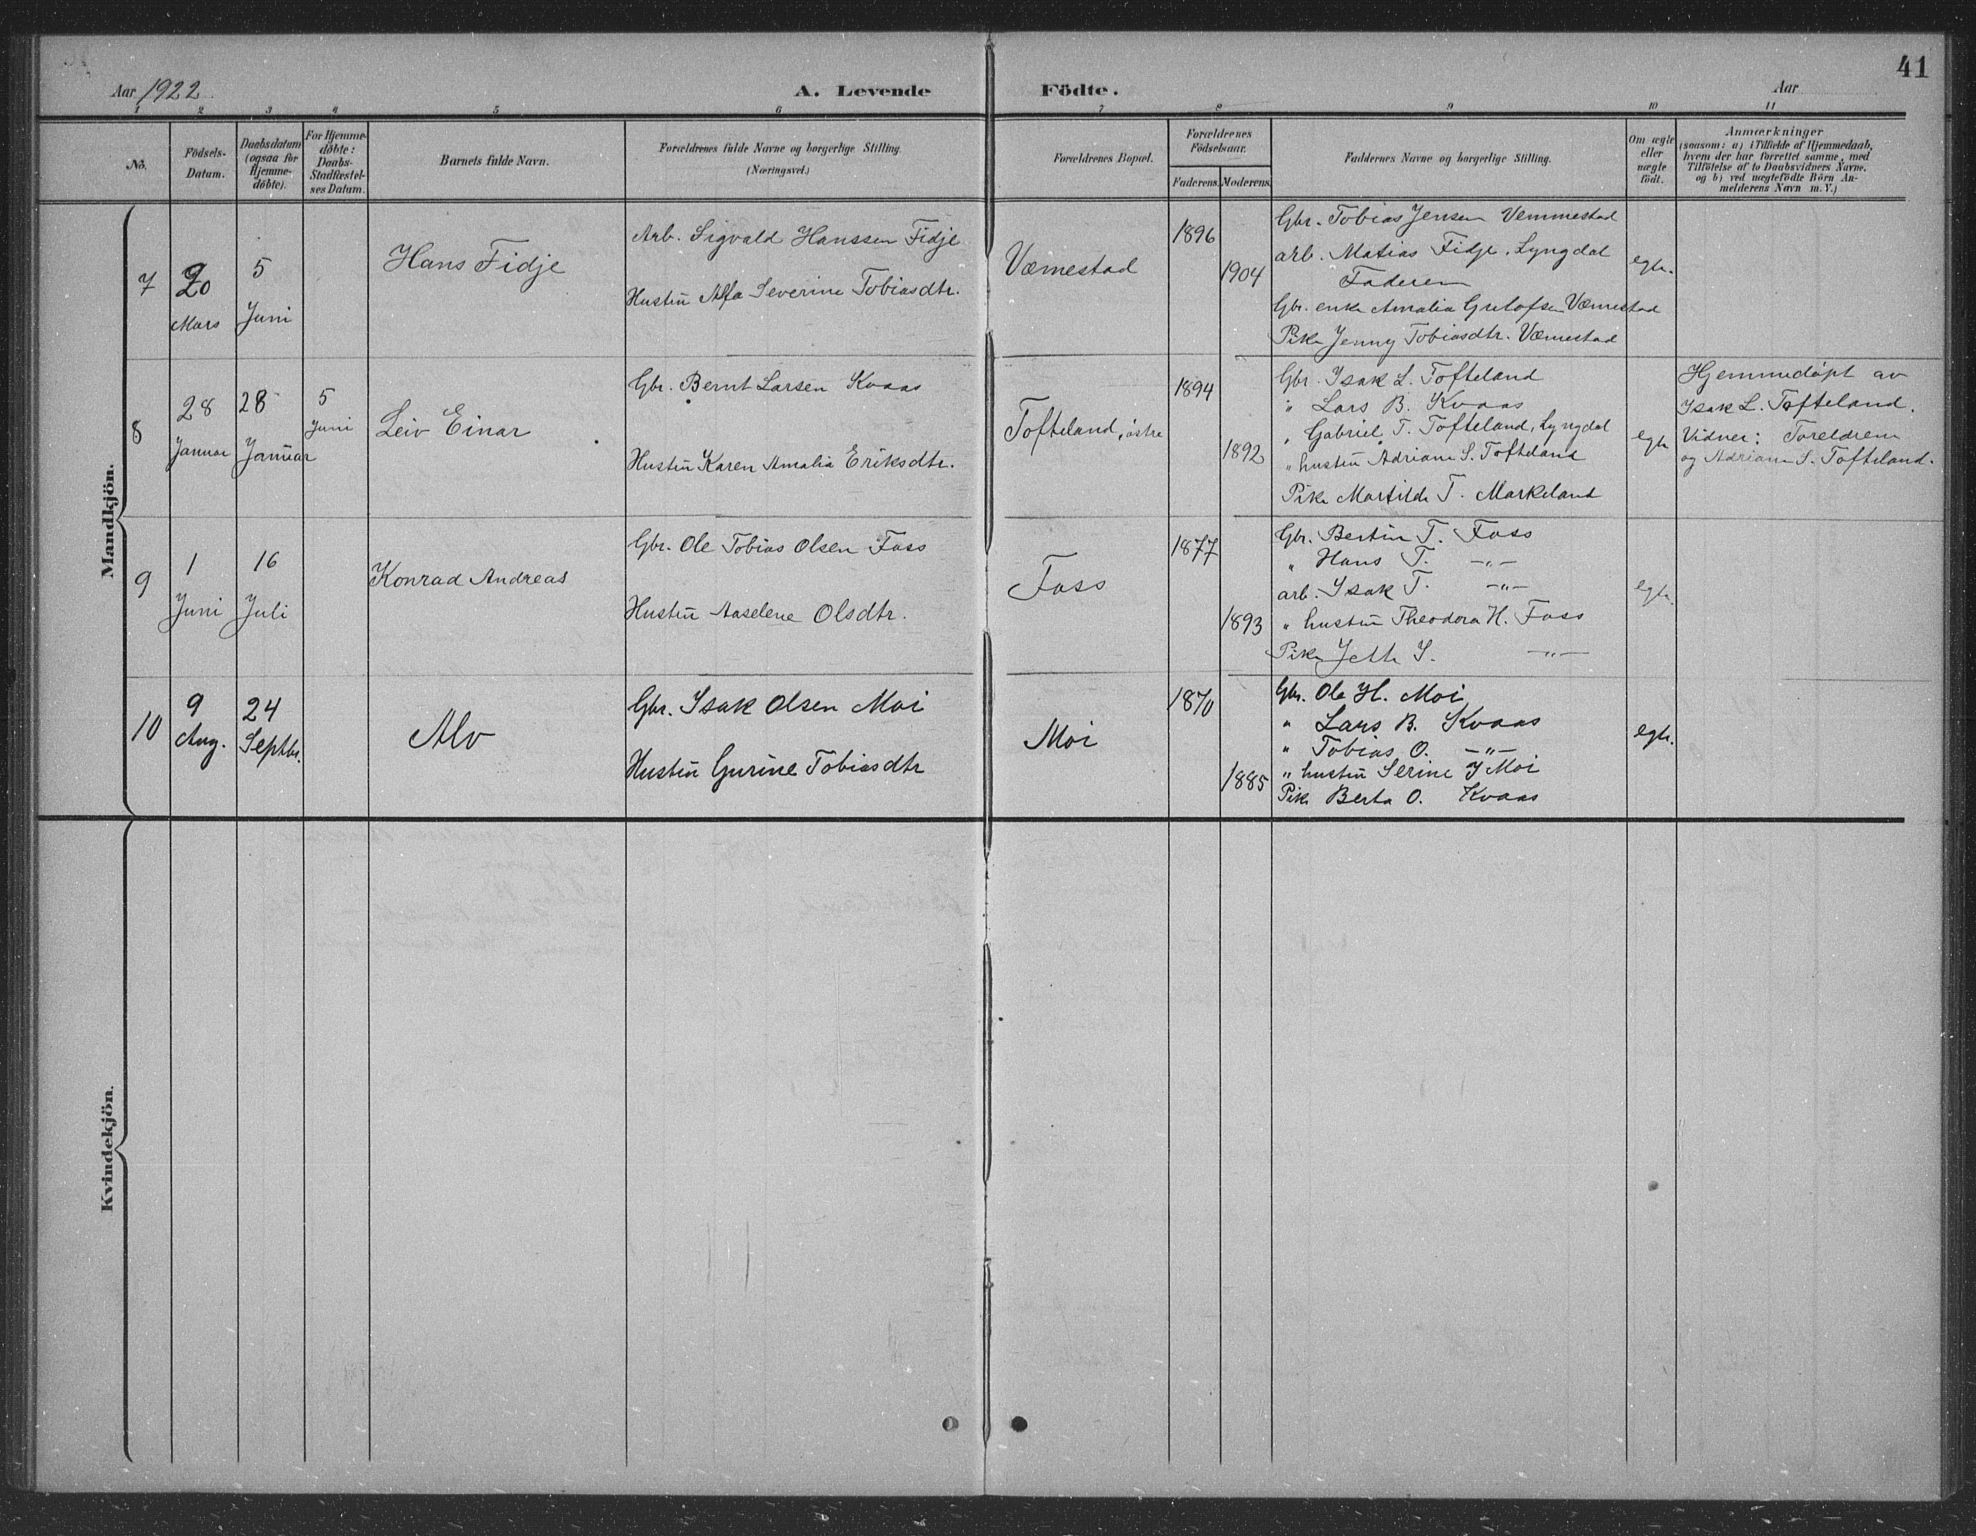 41
Aar 1922
A. Levende
Födte.
Aar
1 2 3 4 5 6 7 8 9 10 11
No.
Födsels-
Datum.
Daabsdatum
(ogsaa for
Hjemme-
döbte).
For Hjemme-
döbte:
Daabs-
Stadfæstel-
ses Datum.
Barnets fulde Navn.
Forældrenes fulde Navne og borgerlige Stilling.
(Næringsvei.)
Forældrenes Bopæl.
Forældrenes
Födselsaar.
Faderens. Moderens.
Faddernes Navne og borgerlige Stilling.
Om ægte
eller
uægte
födt.
Anmærkninger
(saasom: a) i Tilfælde af Hjemmedaab,
hvem der har forrettet samme, med
Tilföielse af to Daabsvidners Navne,
og b) ved uægtefödte Börn An-
melderens Navn m. V.)
Mandkjön.
7
20
Mars
5
Juni
Hans Fidje
Arb. Sigvald Hanssen Fidje
Hustru Alfa Severine Tobiasdtr.
Væmestad
1896
1904
Gbr. Tobias Jensen Vemmestad
arb. Matias Fidje, Lyngdal
Faderen
Gbr. enke Amalia Gustofsen Væmestad
Pike Jenny Tobiasdtr. Væmestad
egte.
8
28
Januar
28
Januar
5
Juni
Leiv Einar
Gbr. Bernt Larsen Kvaas
Hustru Karen Amalia Eriksdtr.
Tofteland, östre
1894
1892
Gbr. Isak L. Tofteland
" Lars B. Kvaas
" Gabriel T. Tofteland, Lyngdal
" hustru Adriane S. Tofteland
Pike Martilde T. Markeland
egte
Hjemmedöpt av
Isak L. Tofteland.
Vidner: Foreldrene
og Adriane S. Tofteland.
9
1
Juni
16
Juli
Konrad Andreas
Gbr. Ole Tobias Olsen Foss
Hustru Aaselene Olsdtr.
Foss
1877
1893
Gbr. Bertin T. Foss
" Hans T. -"-
arb. Isak T. -"-
" hustru Theodora H. Foss
Pike Jette S. -"-
egte.
10
9
Aug.
24
Septbr.
Alv
Gbr. Isak Olsen Moi
Hustru Gurine Tobiasdtr
Moi
1870
1885
Gbr. Ole H. Moi
" Lars B. Kvaas
" Tobias O. -"-
" hustru Serine J Moi
Pike Berta O. Kvaas
egte.
Kvindekjön.